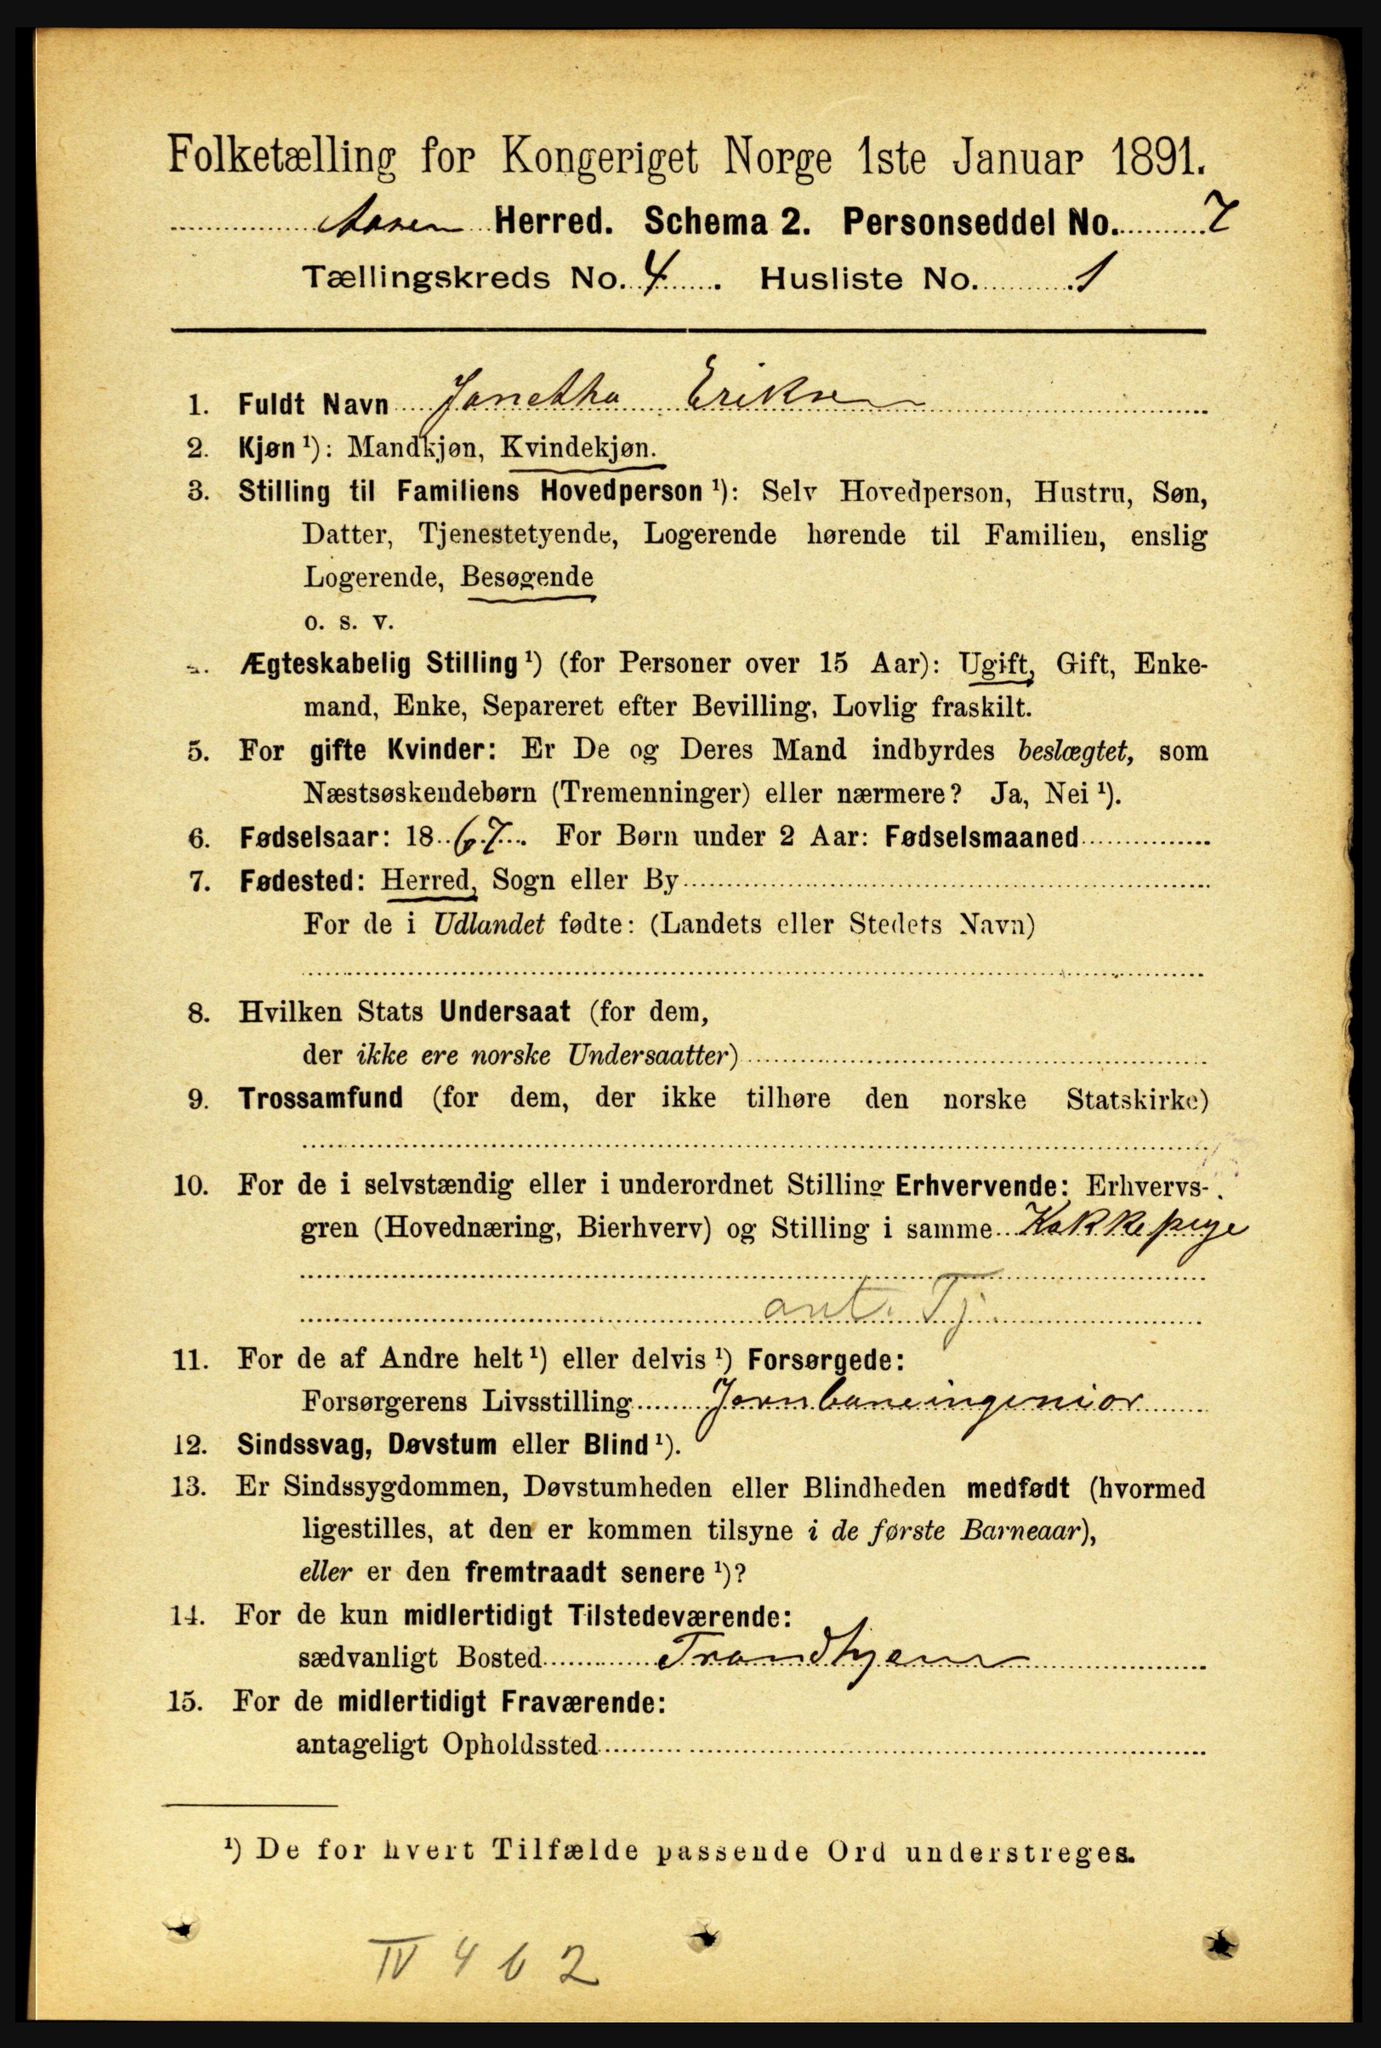 Folketælling for Kongeriget Norge 1ste Januar 1891.
Aasen Herred. Schema 2. Personseddel No. 7
Tællingskreds No. 4. Husliste No. 1
1. Fuldt Navn Janetha Eriksen
2. Kjøn ¹): Mandkjøn, Kvindekjøn.
3. Stilling til Familiens Hovedperson ¹): Selv Hovedperson, Hustru, Søn,
Datter, Tjenestetyende, Logerende hørende til Familien, enslig
Logerende, Besøgende
o. s. v.
4. Ægteskabelig Stilling ¹) (for Personer over 15 Aar): Ugift, Gift, Enke-
mand, Enke, Separeret efter Bevilling, Lovlig fraskilt.
5. For gifte Kvinder: Er De og Deres Mand indbyrdes beslægtet, som
Næstsøskendebørn (Tremenninger) eller nærmere? Ja, Nei ¹).
6. Fødselsaar: 1867. For Børn under 2 Aar: Fødselsmaaned
7. Fødested: Herred, Sogn eller By
For de i Udlandet fødte: (Landets eller Stedets Navn)
8. Hvilken Stats Undersaat (for dem,
der ikke ere norske Undersaatter)
9. Trossamfund (for dem, der ikke tilhøre den norske Statskirke)
10. For de i selvstændig eller i underordnet Stilling Erhvervende: Erhvervs-
gren (Hovednæring, Bierhverv) og Stilling i samme Kokkepige
ant. Tj.
11. For de af Andre helt ¹) eller delvis ¹) Forsørgede:
Forsørgerens Livsstilling Jernbaneingeniør
12. Sindssvag, Døvstum eller Blind ¹).
13. Er Sindssygdommen, Døvstumheden eller Blindheden medfødt (hvormed
ligestilles, at den er kommen tilsyne i de første Barneaar),
eller er den fremtraadt senere ¹)?
14. For de kun midlertidigt Tilstedeværende:
sædvanligt Bosted Trondhjem
15. For de midlertidigt Fraværende:
antageligt Opholdssted
¹) De for hvert Tilfælde passende Ord understreges.
IV 462